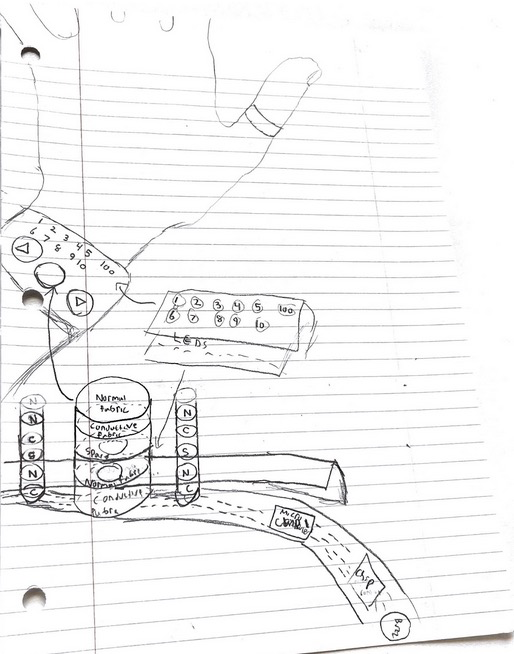 1 2 3 4 5 100
6 7 8 9 10
1 2 3 4 5 100
6 7 8 9 10
LEDs
Normal
fabric
Conductive
fabric
Normal fabric
Conductive
fabric
N
N
C
S
N
C
N
C
S
N
C
Micro
Chip
Buzz